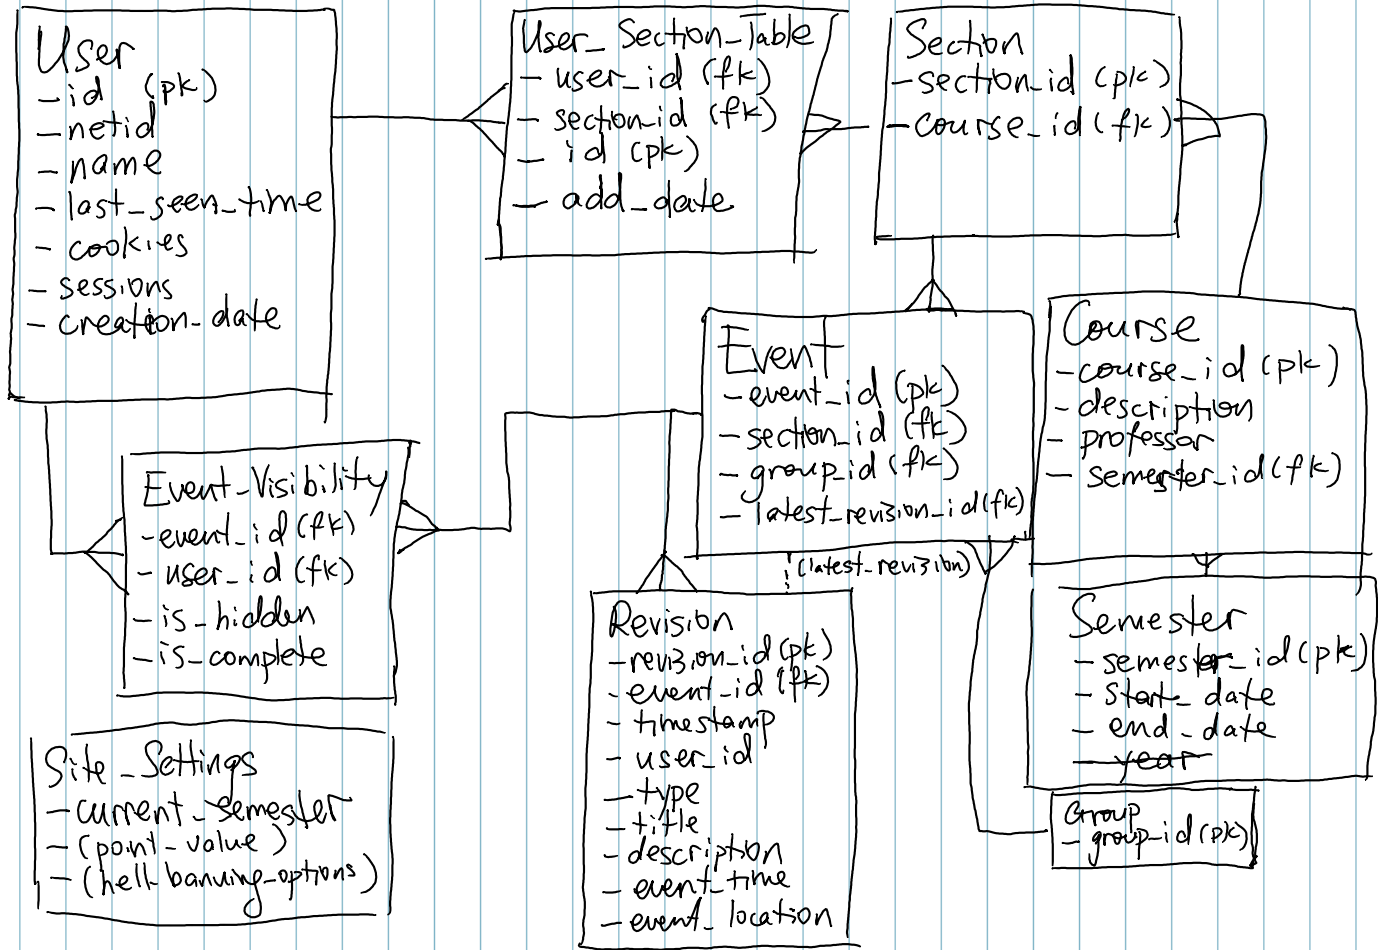 User
- id (pk)
- netid
- name
- last_seen_time
- cookies
- sessions
- creation_date
User_Section_Table
- user_id (fk)
- section_id (fk)
- id (pk)
- add_date
Section
- section_id (pk)
- course_id (fk)
Event
- event_id (pk)
- section_id (fk)
- group_id (fk)
- latest_revision_id (fk)
(latest_revision)
Course
- course_id (pk)
- description
- professor
- semester_id (fk)
Event_Visibility
- event_id (fk)
- user_id (fk)
- is_hidden
- is_complete
Revision
- revision_id (pk)
- event_id (fk)
- timestamp
- user_id
- type
- title
- description
- event_time
- event_location
Semester
- semester_id (pk)
- start_date
- end_date
- year
Site_Settings
- current_semester
- (point_value)
- (hell-banning_options)
Group
- group_id (pk)